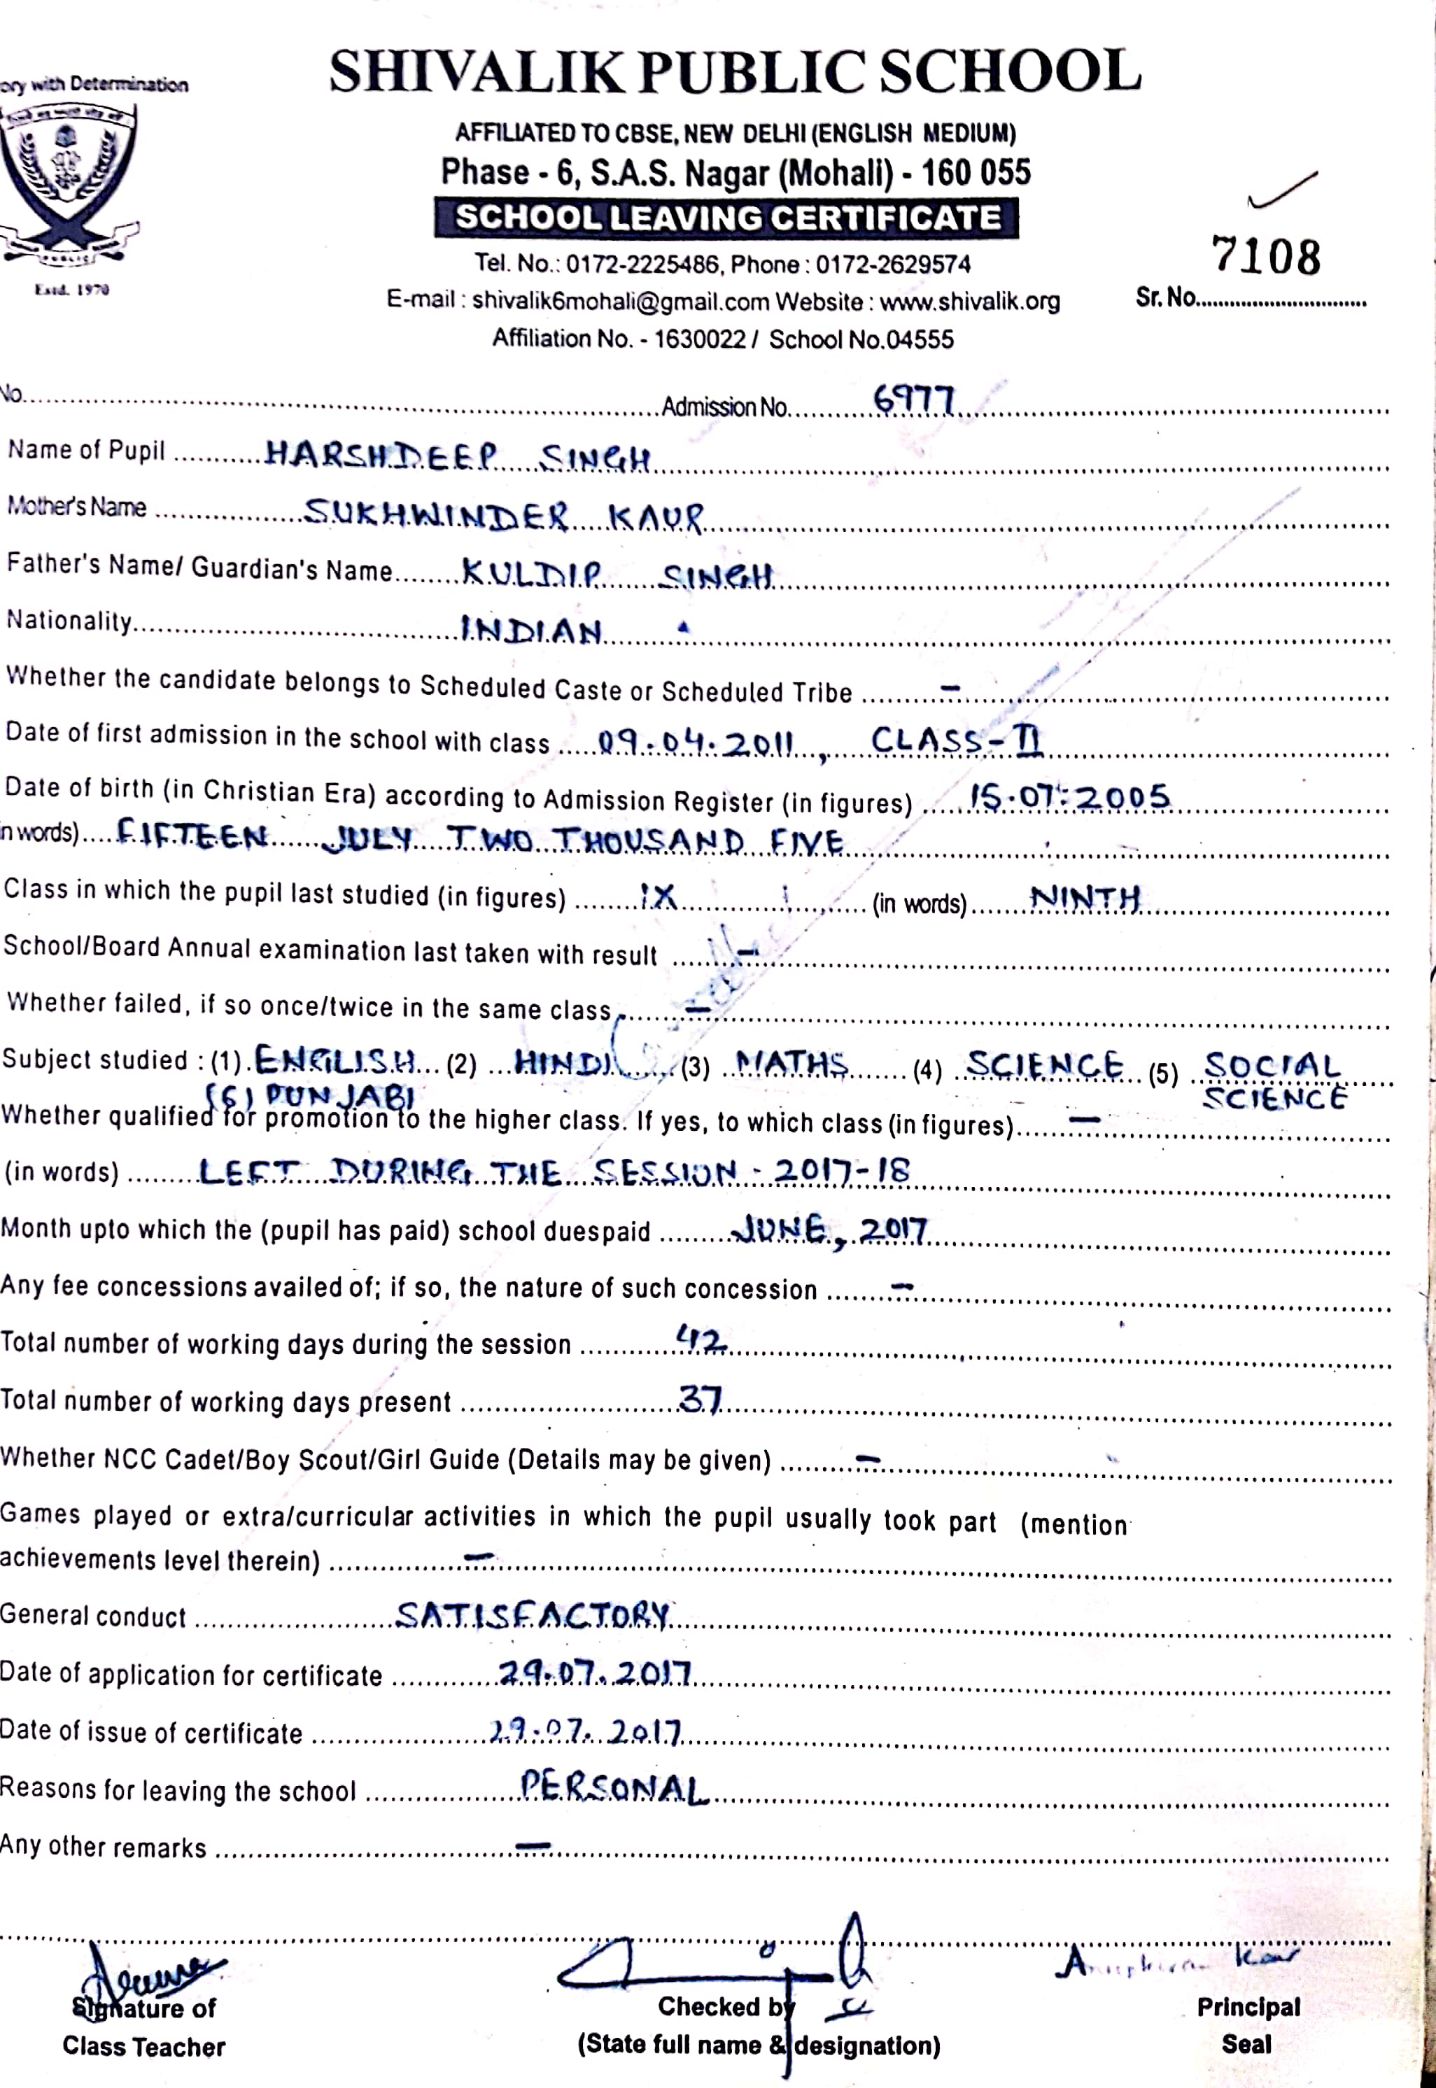 SHIVALIK PUBLIC SCHOOL
ory with Determination
AFFILIATED TO CBSE, NEW DELHI (ENGLISH MEDIUM)
Phase - 6, S.A.S. Nagar (Mohali) - 160 055
SCHOOL LEAVING CERTIFICATE
Tel. No.: 0172-2225486, Phone : 0172-2629574
7108
E-mail : shivalik6mohali@gmail.com Website : www.shivalik.org
Sr. No.
PUBLIC
Estd. 1970
Affiliation No. - 1630022 / School No.04555
No. Admission No. 6977
Name of Pupil HARSHDEEP SINGH
Mother's Name SUKHWINDER KAUR
Father's Name/ Guardian's Name KULDIP SINGH
Nationality INDIAN
Whether the candidate belongs to Scheduled Caste or Scheduled Tribe –
Date of first admission in the school with class 09.04.2011, CLASS-II
Date of birth (in Christian Era) according to Admission Register (in figures) 15.07.2005
n words) FIFTEEN JULY TWO THOUSAND FIVE
Class in which the pupil last studied (in figures) IX (in words) NINTH
School/Board Annual examination last taken with result –
Whether failed, if so once/twice in the same class –
Subject studied : (1) ENGLISH (2) HINDI (3) MATHS (4) SCIENCE (5) SOCIAL SCIENCE
(6) PUNJABI
Whether qualified for promotion to the higher class. If yes, to which class (in figures) –
(in words) LEFT DURING THE SESSION - 2017-18
Month upto which the (pupil has paid) school duespaid JUNE, 2017
Any fee concessions availed of; if so, the nature of such concession –
Total number of working days during the session 42
Total number of working days present 37
Whether NCC Cadet/Boy Scout/Girl Guide (Details may be given) –
Games played or extra/curricular activities in which the pupil usually took part (mention
achievements level therein) –
General conduct SATISFACTORY
Date of application for certificate 29.07.2017
Date of issue of certificate 29.07.2017
Reasons for leaving the school PERSONAL
Any other remarks –
Kaur
Signature of Checked by Principal
Class Teacher (State full name & designation) Seal